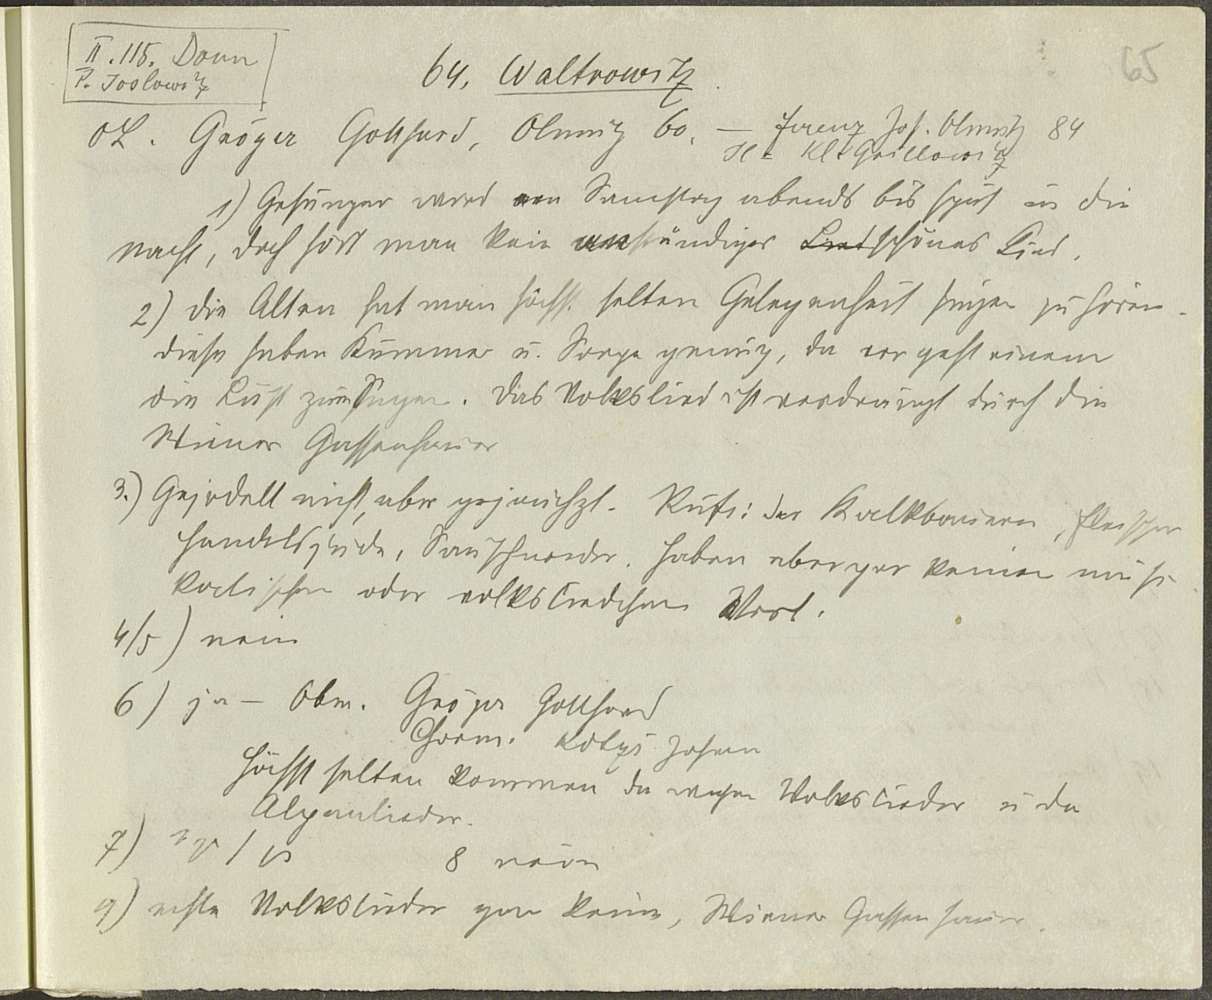 II. 115. Donn
P. Joslowitz
65
64. Waltrowitz
OL. Gröger Gotthard, Olmütz 60. — Ferenz Jos. Olmütz 84
Kl. Grillowitz
1) Gesungen wird am Samstag abends bis spät in die
Nacht, doch hört man kein anständiges Lied schönes Lied.
2) Die Alten hat man höchst selten Gelegenheit singen zu hören.
diese haben Kummer u. Sorge genug, da vergeht einem
die Lust zum Singen. Das Volkslied ist verdrängt durch die
Wiener Gassenhauer
3.) Gejodelt nicht, aber gejauchzt. Rufe: der Kalkbauern, Fleischer
Handelsjude, Sauschneider. haben aber gar keinen musi-
kalischen oder volksliedchen Wert.
4/5) nein
6) ja — Obm. Gröger Gotthard
Chorm. Johann
Höchst selten kommen da Volkslieder u da
Alpenlieder.
7)
8 nein
9) echte Volkslieder gar keine, Wiener Gassenhauer.